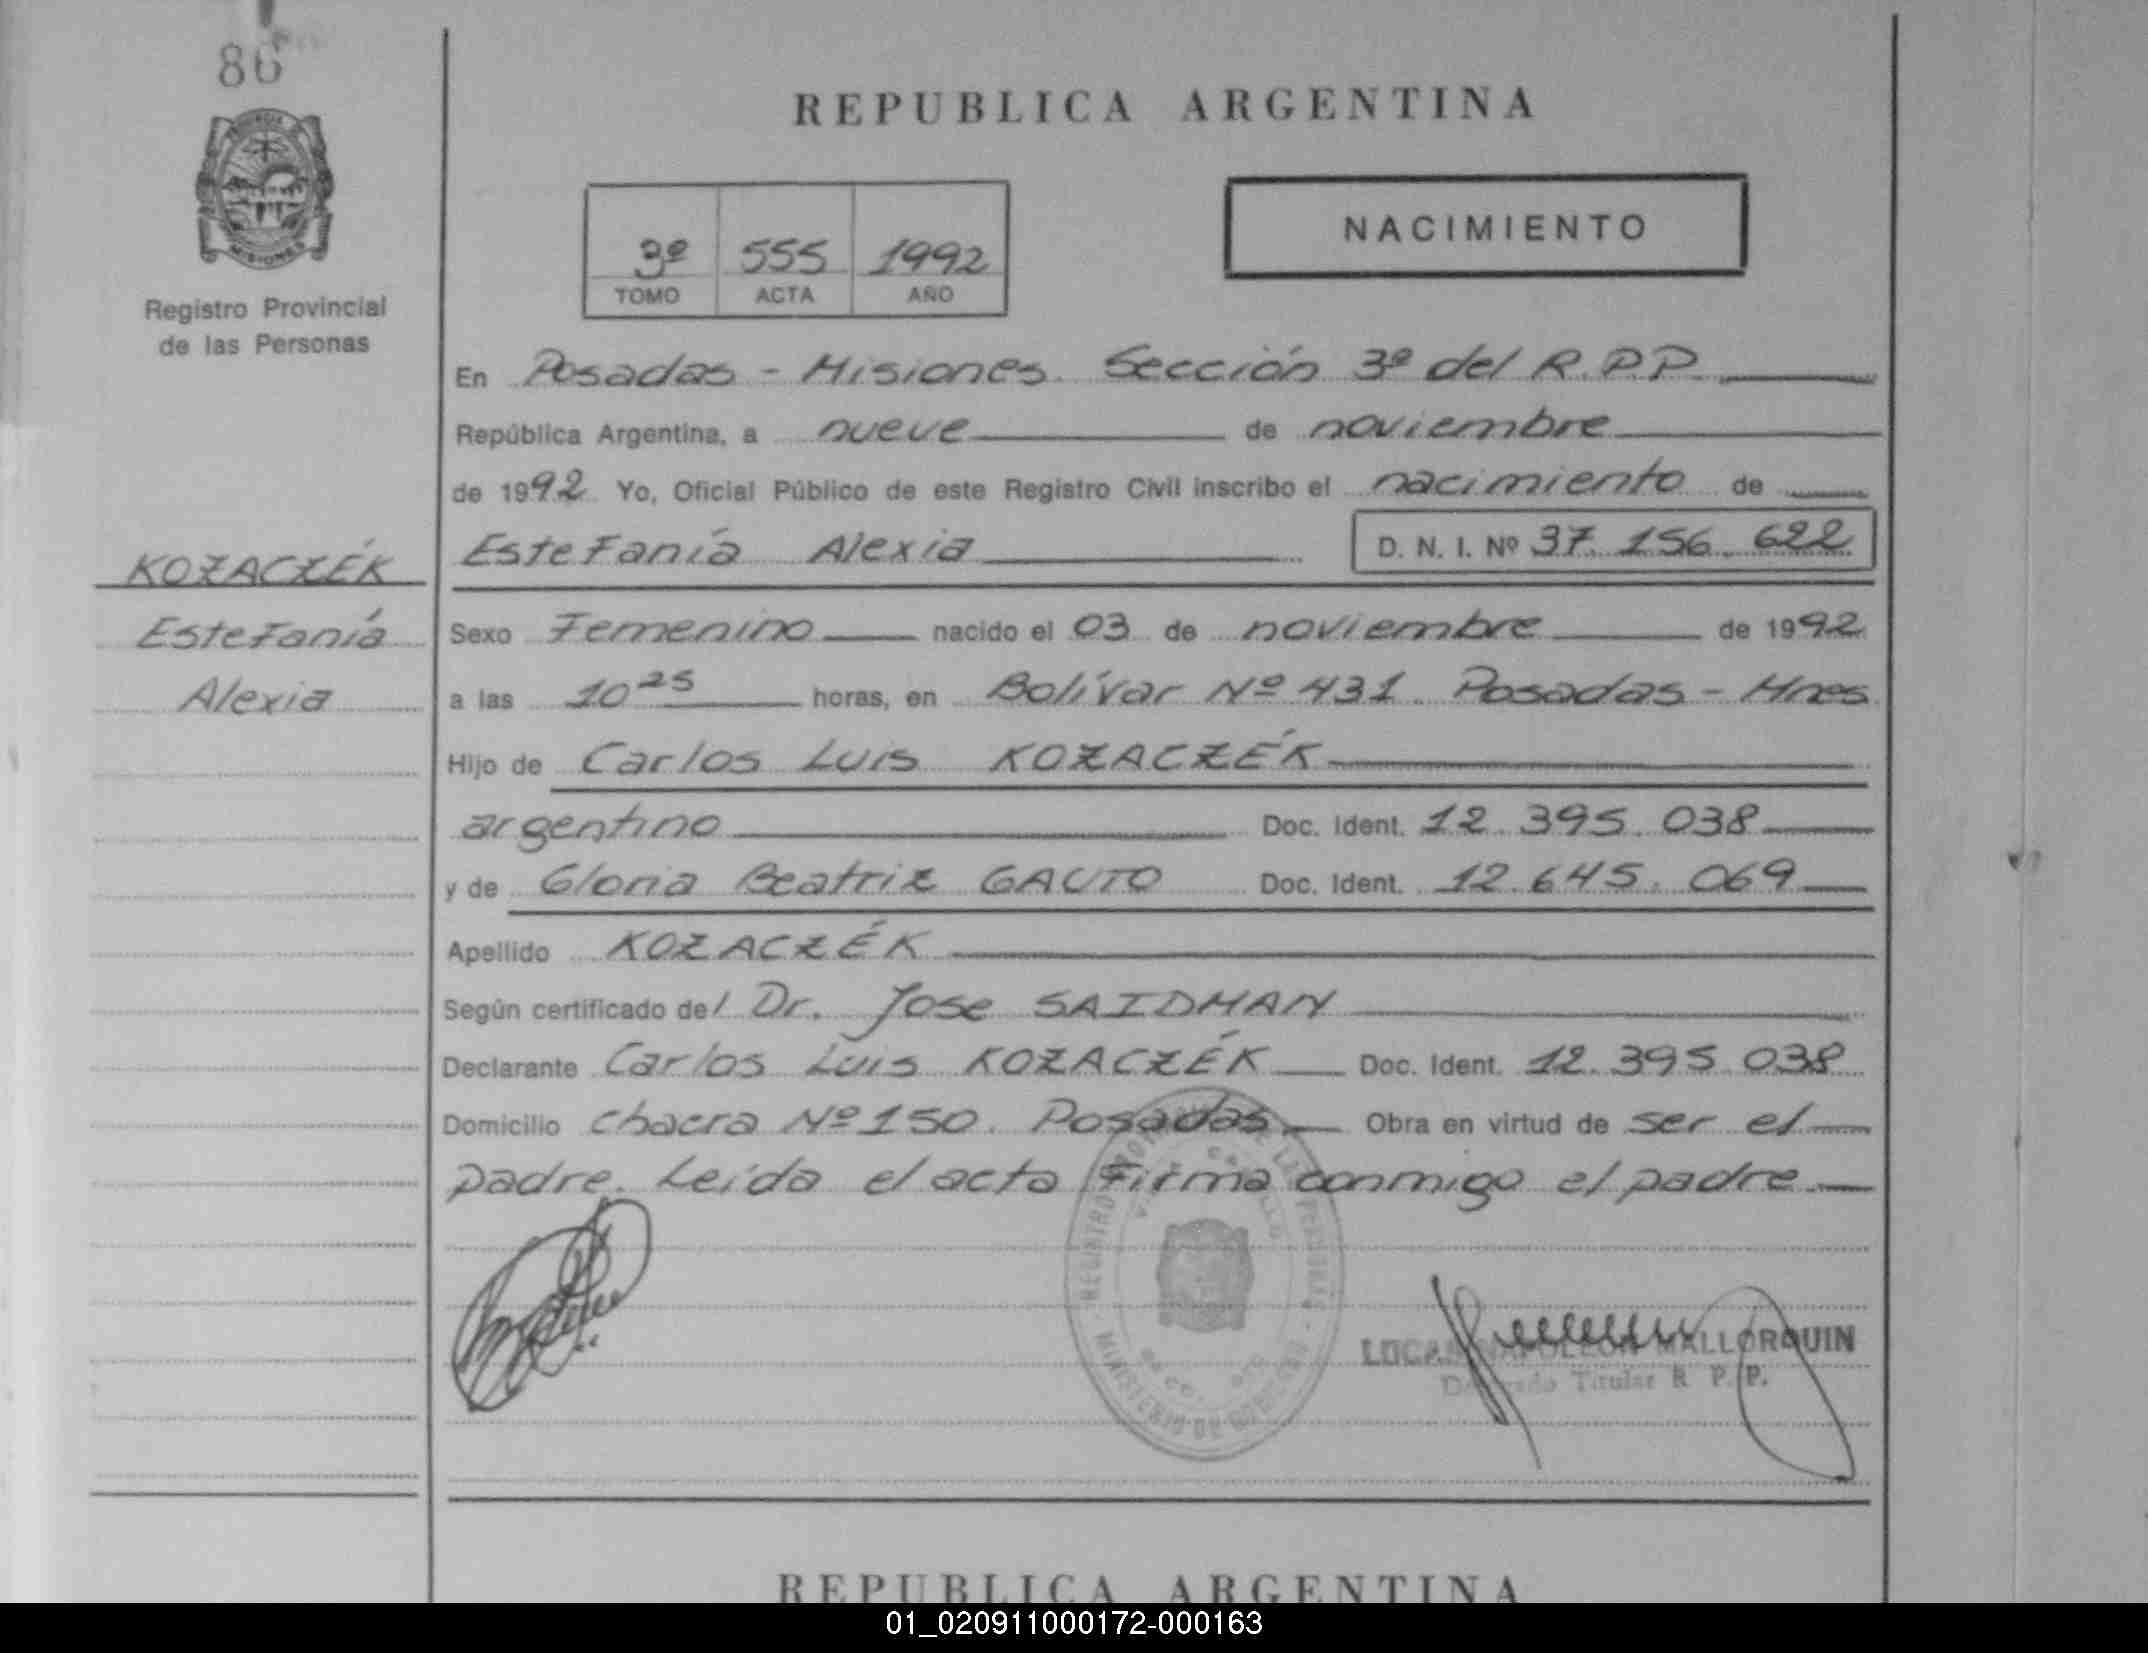 86
REPUBLICA ARGENTINA
NACIMIENTO
3º 555 1992
TOMO ACTA AÑO
MISIONES
Registro Provincial
de las Personas
En Posadas - Misiones. Sección 3º del R.P.P.
República Argentina, a nueve de noviembre
de 1992 Yo, Oficial Público de este Registro Civil inscribo el nacimiento de
Estefanía Alexia D. N. I. Nº 37.156.622
KOZACZÉK
Estefanía
Alexia
Sexo Femenino nacido el 03 de noviembre de 1992
a las 10 25 horas, en Bolívar Nº 431. Posadas - Mnes
Hijo de Carlos Luis KOZACZÉK
argentino Doc. Ident. 12.395.038
y de Gloria Beatriz GAUTO Doc. Ident. 12.645.069
Apellido KOZACZÉK
Según certificado del Dr. Jose SAIDMAN
Declarante Carlos Luis KOZACZÉK Doc. Ident. 12.395.038
Domicilio chacra Nº 150. Posadas Obra en virtud de ser el
padre. Leída el acta firma conmigo el padre
LUCAS NAPOLEON MALLORQUIN
Delegado Titular R. P. P.
REPUBLICA ARGENTINA
01_020911000172-000163